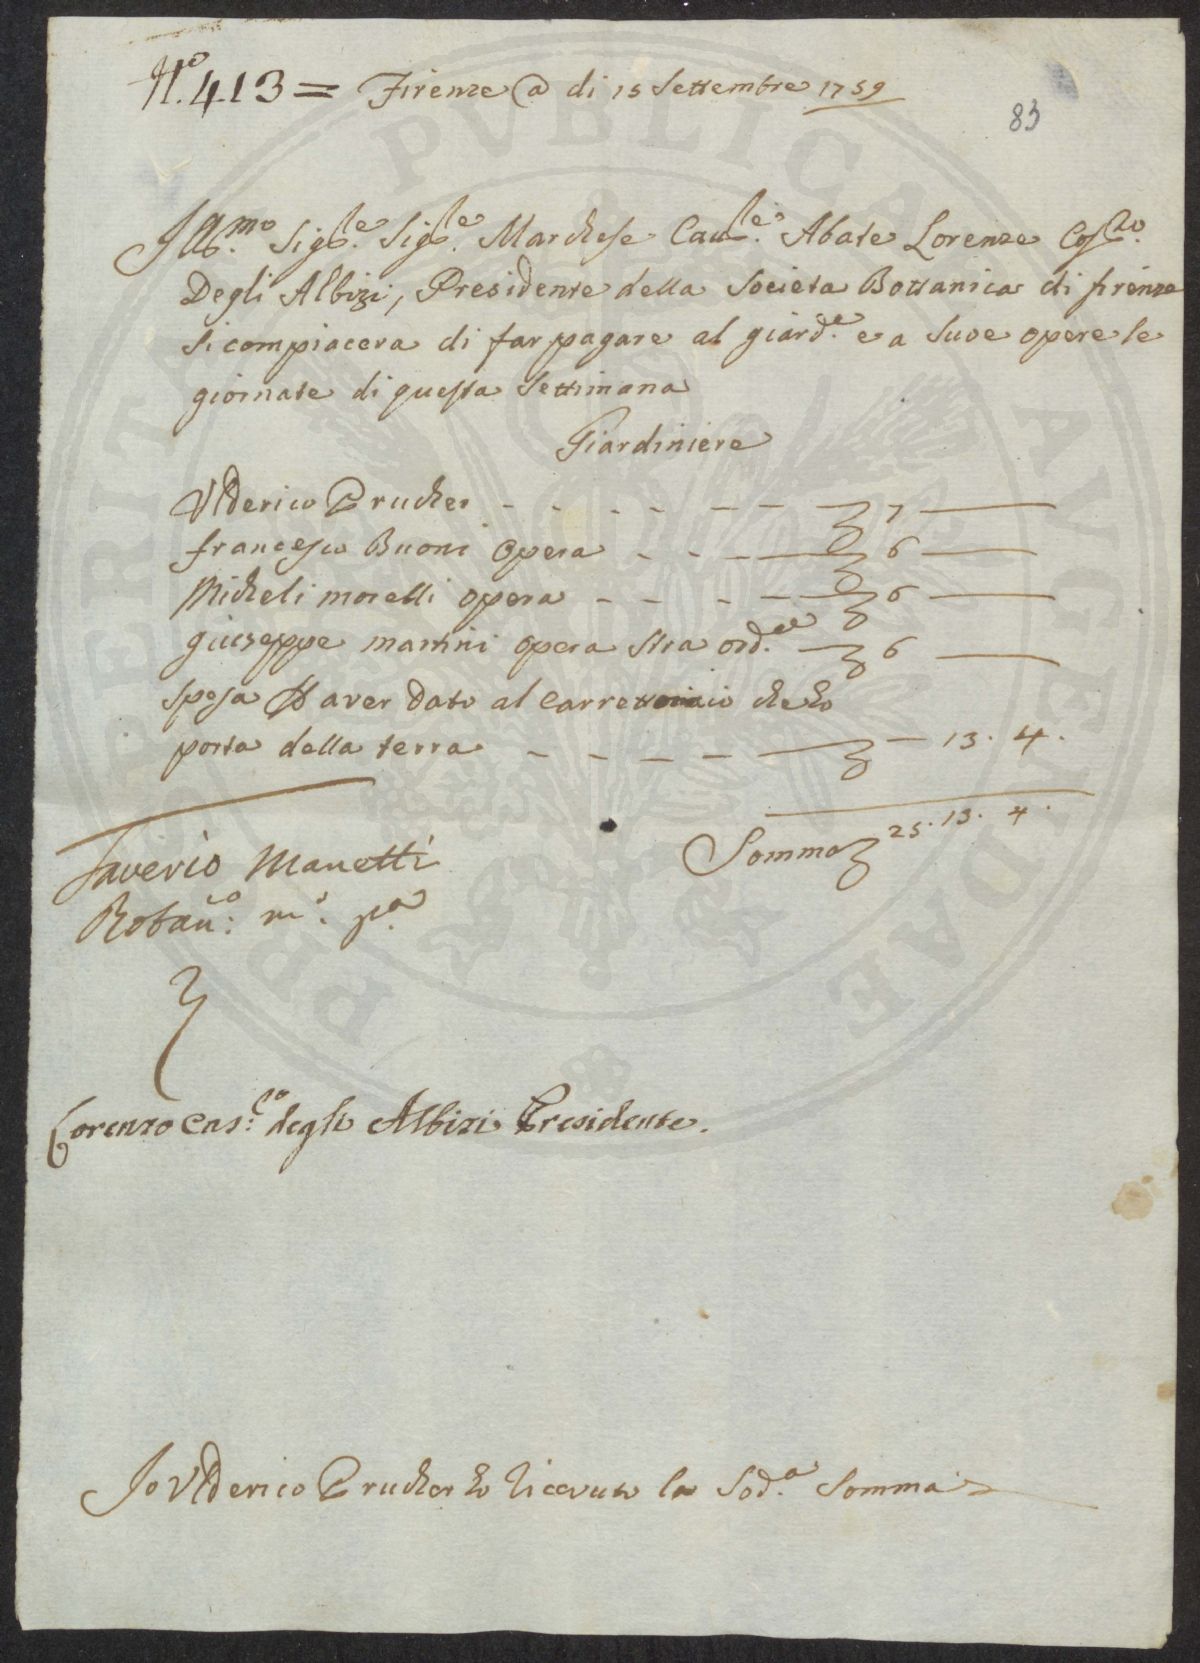 N.º 413 = Firenze @ di 15 Settembre 1759
83
Ill.mo Sig.re Sig.re Marchese Cav.re Abate Lorenzo
Degli Albizi, Presidente della Societa Bottanica di firenze
si compiacera di far pagare al giard.e e a Sue opere le
giornate di questa Settimana
Giardiniere
Ulderico Prucher - - - - - - - 7 —
francesco Buoni opera - - - 6 —
Micheli morelli opera - - - - 6 —
giuseppe martini opera stra ord.e — 6 —
Spesa aver dato al carrettonaio che ho
porta della terra - - - - — 13. 4.
Somma 25. 13. 4.
Saverio Manetti
Botan.co m.o p.a
Lorenzo Cas.to degli Albizi Presidente.
Io Ulderico Prucher ho ricevuto la Sod.a Somma